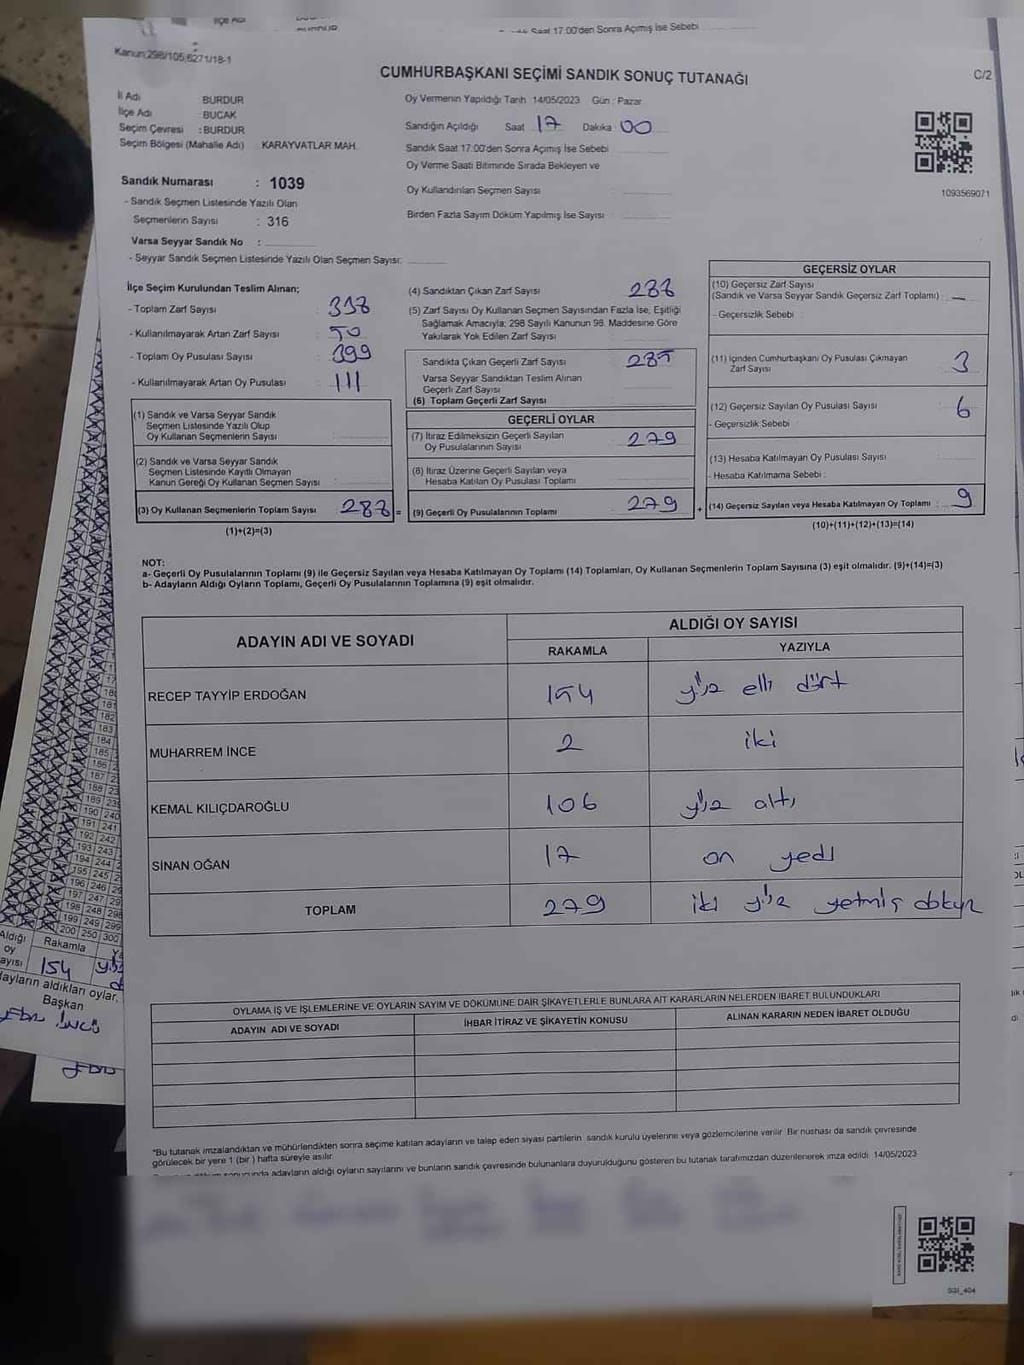 Saat 17:00'den Sonra Açımış İse Sebebi
Kanun;298/105;6271/18-1
CUMHURBAŞKANI SEÇİMİ SANDIK SONUÇ TUTANAĞI
C/2
İl Adı : BURDUR
İlçe Adı : BUCAK
Seçim Çevresi : BURDUR
Seçim Bölgesi (Mahalle Adı) KARAYVATLAR MAH.
Sandık Numarası : 1039
- Sandık Seçmen Listesinde Yazılı Olan
Seçmenlerin Sayısı : 316
Varsa Seyyar Sandık No :
- Seyyar Sandık Seçmen Listesinde Yazılı Olan Seçmen Sayısı:
Oy Vermenin Yapıldığı Tarih 14/05/2023 Gün : Pazar
Sandığın Açıldığı Saat 17 Dakika 00
Sandık Saat 17:00'den Sonra Açımış İse Sebebi
Oy Verme Saati Bitiminde Sırada Bekleyen ve
Oy Kullandırılan Seçmen Sayısı
Birden Fazla Sayım Döküm Yapılmış İse Sayısı
1093569071
İlçe Seçim Kurulundan Teslim Alınan;
- Toplam Zarf Sayısı : 338
- Kullanılmayarak Artan Zarf Sayısı : 50
- Toplam Oy Pusulası Sayısı : 399
- Kullanılmayarak Artan Oy Pusulası : 111
(1) Sandık ve Varsa Seyyar Sandık
Seçmen Listesinde Yazılı Olup
Oy Kullanan Seçmenlerin Sayısı
(2) Sandık ve Varsa Seyyar Sandık
Seçmen Listesinde Kayıtlı Olmayan
Kanun Gereği Oy Kullanan Seçmen Sayısı
(3) Oy Kullanan Seçmenlerin Toplam Sayısı 288 =
(1)+(2)=(3)
(4) Sandıktan Çıkan Zarf Sayısı 288
(5) Zarf Sayısı Oy Kullanan Seçmen Sayısından Fazla İse, Eşitliği
Sağlamak Amacıyla; 298 Sayılı Kanunun 98. Maddesine Göre
Yakılarak Yok Edilen Zarf Sayısı
Sandıkta Çıkan Geçerli Zarf Sayısı 285
Varsa Seyyar Sandıktan Teslim Alınan
Geçerli Zarf Sayısı
(6) Toplam Geçerli Zarf Sayısı
GEÇERLİ OYLAR
(7) İtiraz Edilmeksizin Geçerli Sayılan
Oy Pusulalarının Sayısı 279
(8) İtiraz Üzerine Geçerli Sayılan veya
Hesaba Katılan Oy Pusulası Toplamı
(9) Geçerli Oy Pusulalarının Toplamı 279 +
GEÇERSİZ OYLAR
(10) Geçersiz Zarf Sayısı
(Sandık ve Varsa Seyyar Sandık Geçersiz Zarf Toplamı) : —
- Geçersizlik Sebebi :
(11) İçinden Cumhurbaşkanı Oy Pusulası Çıkmayan
Zarf Sayısı 3
(12) Geçersiz Sayılan Oy Pusulası Sayısı 6
- Geçersizlik Sebebi :
(13) Hesaba Katılmayan Oy Pusulası Sayısı
- Hesaba Katılmama Sebebi :
(14) Geçersiz Sayılan veya Hesaba Katılmayan Oy Toplamı : 9
(10)+(11)+(12)+(13)=(14)
NOT:
a- Geçerli Oy Pusulalarının Toplamı (9) ile Geçersiz Sayılan veya Hesaba Katılmayan Oy Toplamı (14) Toplamları, Oy Kullanan Seçmenlerin Toplam Sayısına (3) eşit olmalıdır. (9)+(14)=(3)
b- Adayların Aldığı Oyların Toplamı, Geçerli Oy Pusulalarının Toplamına (9) eşit olmalıdır.
ADAYIN ADI VE SOYADI
ALDIĞI OY SAYISI
RAKAMLA YAZIYLA
RECEP TAYYİP ERDOĞAN 154 yüz elli dört
MUHARREM İNCE 2 iki
KEMAL KILIÇDAROĞLU 106 yüz altı
SİNAN OĞAN 17 on yedi
TOPLAM 279 iki yüz yetmiş dokuz
OYLAMA İŞ VE İŞLEMLERİNE VE OYLARIN SAYIM VE DÖKÜMÜNE DAİR ŞİKAYETLERLE BUNLARA AİT KARARLARIN NELERDEN İBARET BULUNDUKLARI
ADAYIN ADI VE SOYADI İHBAR İTİRAZ VE ŞİKAYETİN KONUSU ALINAN KARARIN NEDEN İBARET OLDUĞU
*Bu tutanak imzalandıktan ve mühürlendikten sonra seçime katılan adayların ve talep eden siyasi partilerin sandık kurulu üyelerine veya gözlemcilerine verilir. Bir nüshası da sandık çevresinde
görülecek bir yere 1 (bir ) hafta süreyle asılır.
adayların aldığı oyların sayılarını ve bunların sandık çevresinde bulunanlara duyurulduğunu gösteren bu tutanak tarafımızdan düzenlenerek imza edildi 14/05/2023
Aldığı
oy
ayısı
Rakamla
154
adayların aldıkları oylar,
Başkan